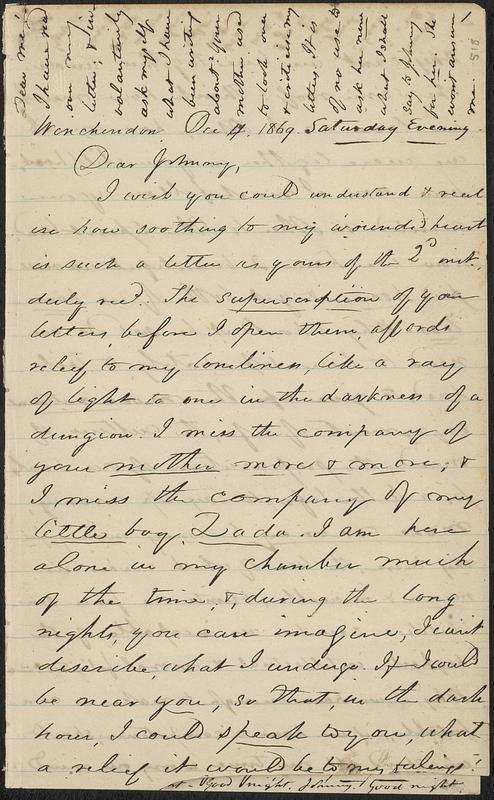 Dear me!
I have read
over my
letter, & in-
voluntarily
ask myself
what I have
been writing
about? Your
mother used
to look over
& criticise my
letters. It is
of no use to
ask her now
what I shall
say to Johnny
for her. She
wont answer
me.
518
Winchendon Dec 4, 1869. Saturday Evening.
Dear Johnny,
I wish you could understand & real-
ize how soothing to my wounded heart
is such a letter as yours of the 2d inst.,
duly recd. The superscription of your
letters, before I open them, affords
relief to my loneliness, like a ray
of light to one in the darkness of a
dungeon. I miss the company of
your mother more & more, &
I miss the company of my
little boy, Zada. I am here
alone in my chamber much
of the time, &, during the long
nights, you can imagine, I can't
describe, what I undergo. If I could
be near you, so that, in the dark
hour, I could speak to you, what
a relief it would be to my feelings!
"Good night, Johnny! Good night.